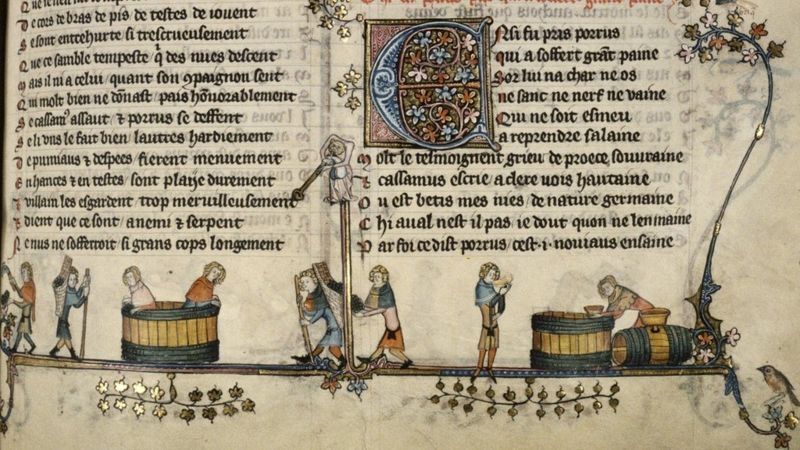 De cors de bras de pis de testes de iouent
Se sont entrehurte si trescrueusement
Que ce samble tempeste q̓ des nues descent
Mais il ni a celui / quant son 9paignon sent
Qui molt bien ne donnast pais honnorablement
Se cassam⁹ assaut / & porrus se deffent
Se li vns le fait bien / lautres hardiement
De pumiaus & despees / fierent menuement
En hances & en testes / sont plaiie durement
& villain les esgardent trop meruilleusement
& dient que ce sont / anemi & serpent
Ne nus ne sofferroit si grans cops longement
Ensi fu pris porrus
qui a soffert grāt paine
Sor lui na char ne os
ne sanc ne nerf ne vaine
Qui ne soit esmeu
a reprendre salaine
Molt le tesmoignent grieu de proece souuraine
& cassamus escrie / a clere uois hautaine
Ou est betis mes nies / de nature germaine
Chiaual nest il pas / ie dout quon ne len maine
Par foi ce dist porrus / cest .i. nouiaus ensaine